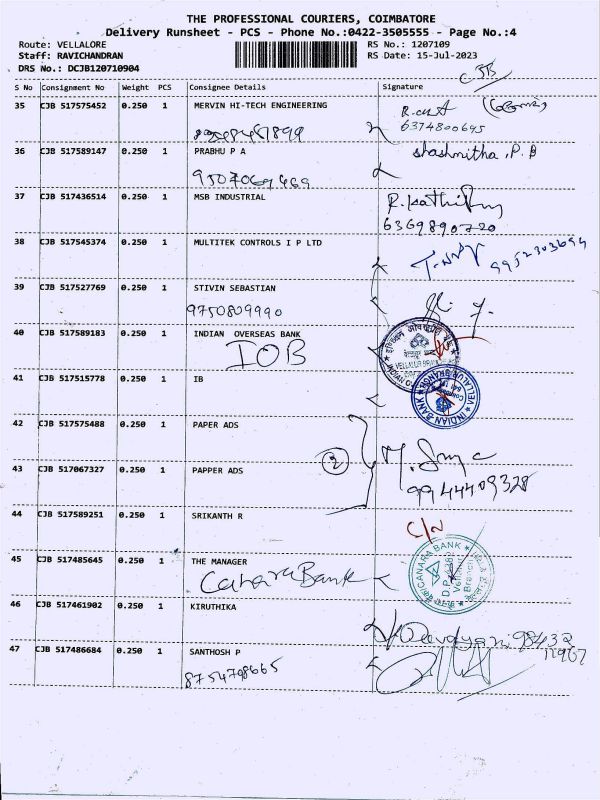 THE PROFESSIONAL COURIERS, COIMBATORE
Delivery Runsheet - PCS - Phone No.:0422-3505555 - Page No.:4
Route: VELLALORE RS No.: 1207109
Staff: RAVICHANDRAN RS Date: 15-Jul-2023
DRS No.: DCJB120710904
S No Consignment No Weight PCS Consignee Details Signature
35 CJB 517575452 0.250 1 MERVIN HI-TECH ENGINEERING
6374800645
36 CJB 517589147 0.250 1 PRABHU P A shashmitha, P. B
37 CJB 517436514 0.250 1 MSB INDUSTRIAL
6369890720
38 CJB 517545374 0.250 1 MULTITEK CONTROLS I P LTD
9952303694
39 CJB 517527769 0.250 1 STIVIN SEBASTIAN
9750809990
40 CJB 517589183 0.250 1 INDIAN OVERSEAS BANK
IOB
41 CJB 517515778 0.250 1 IB
INDIAN BANK VELLALUR BRANCH
42 CJB 517575488 0.250 1 PAPER ADS
2
43 CJB 517067327 0.250 1 PAPPER ADS
9944409328
44 CJB 517589251 0.250 1 SRIKANTH R
C/N
45 CJB 517485645 0.250 1 THE MANAGER
CANARA BANK
Canara Bank
46 CJB 517461902 0.250 1 KIRUTHIKA
47 CJB 517486684 0.250 1 SANTHOSH P
8754798665